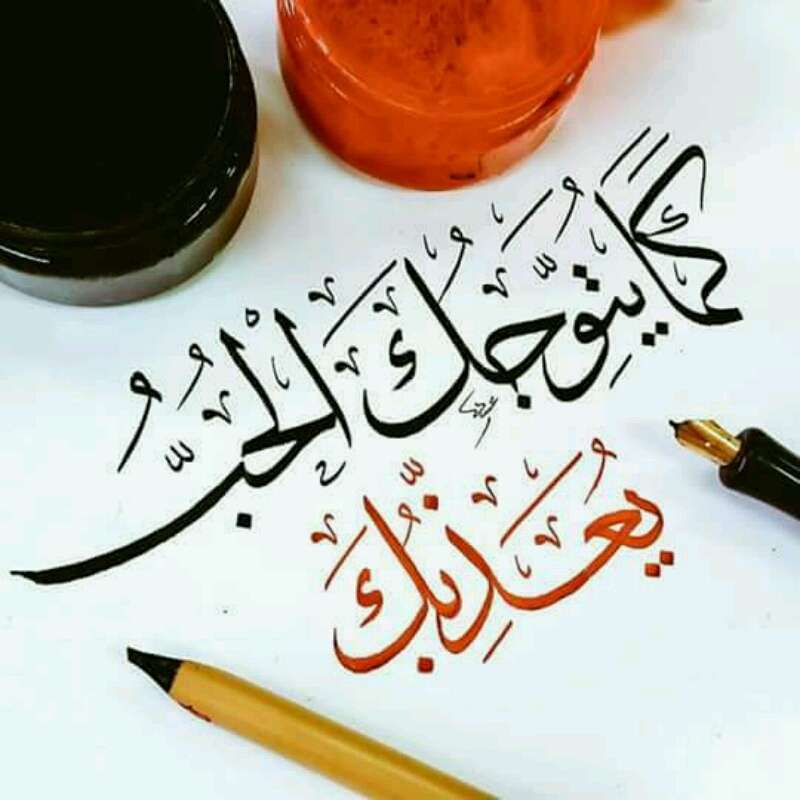 كَمَا يُتَوِّجُكَ الْحُبُّ
يُعَذِّبُكَ